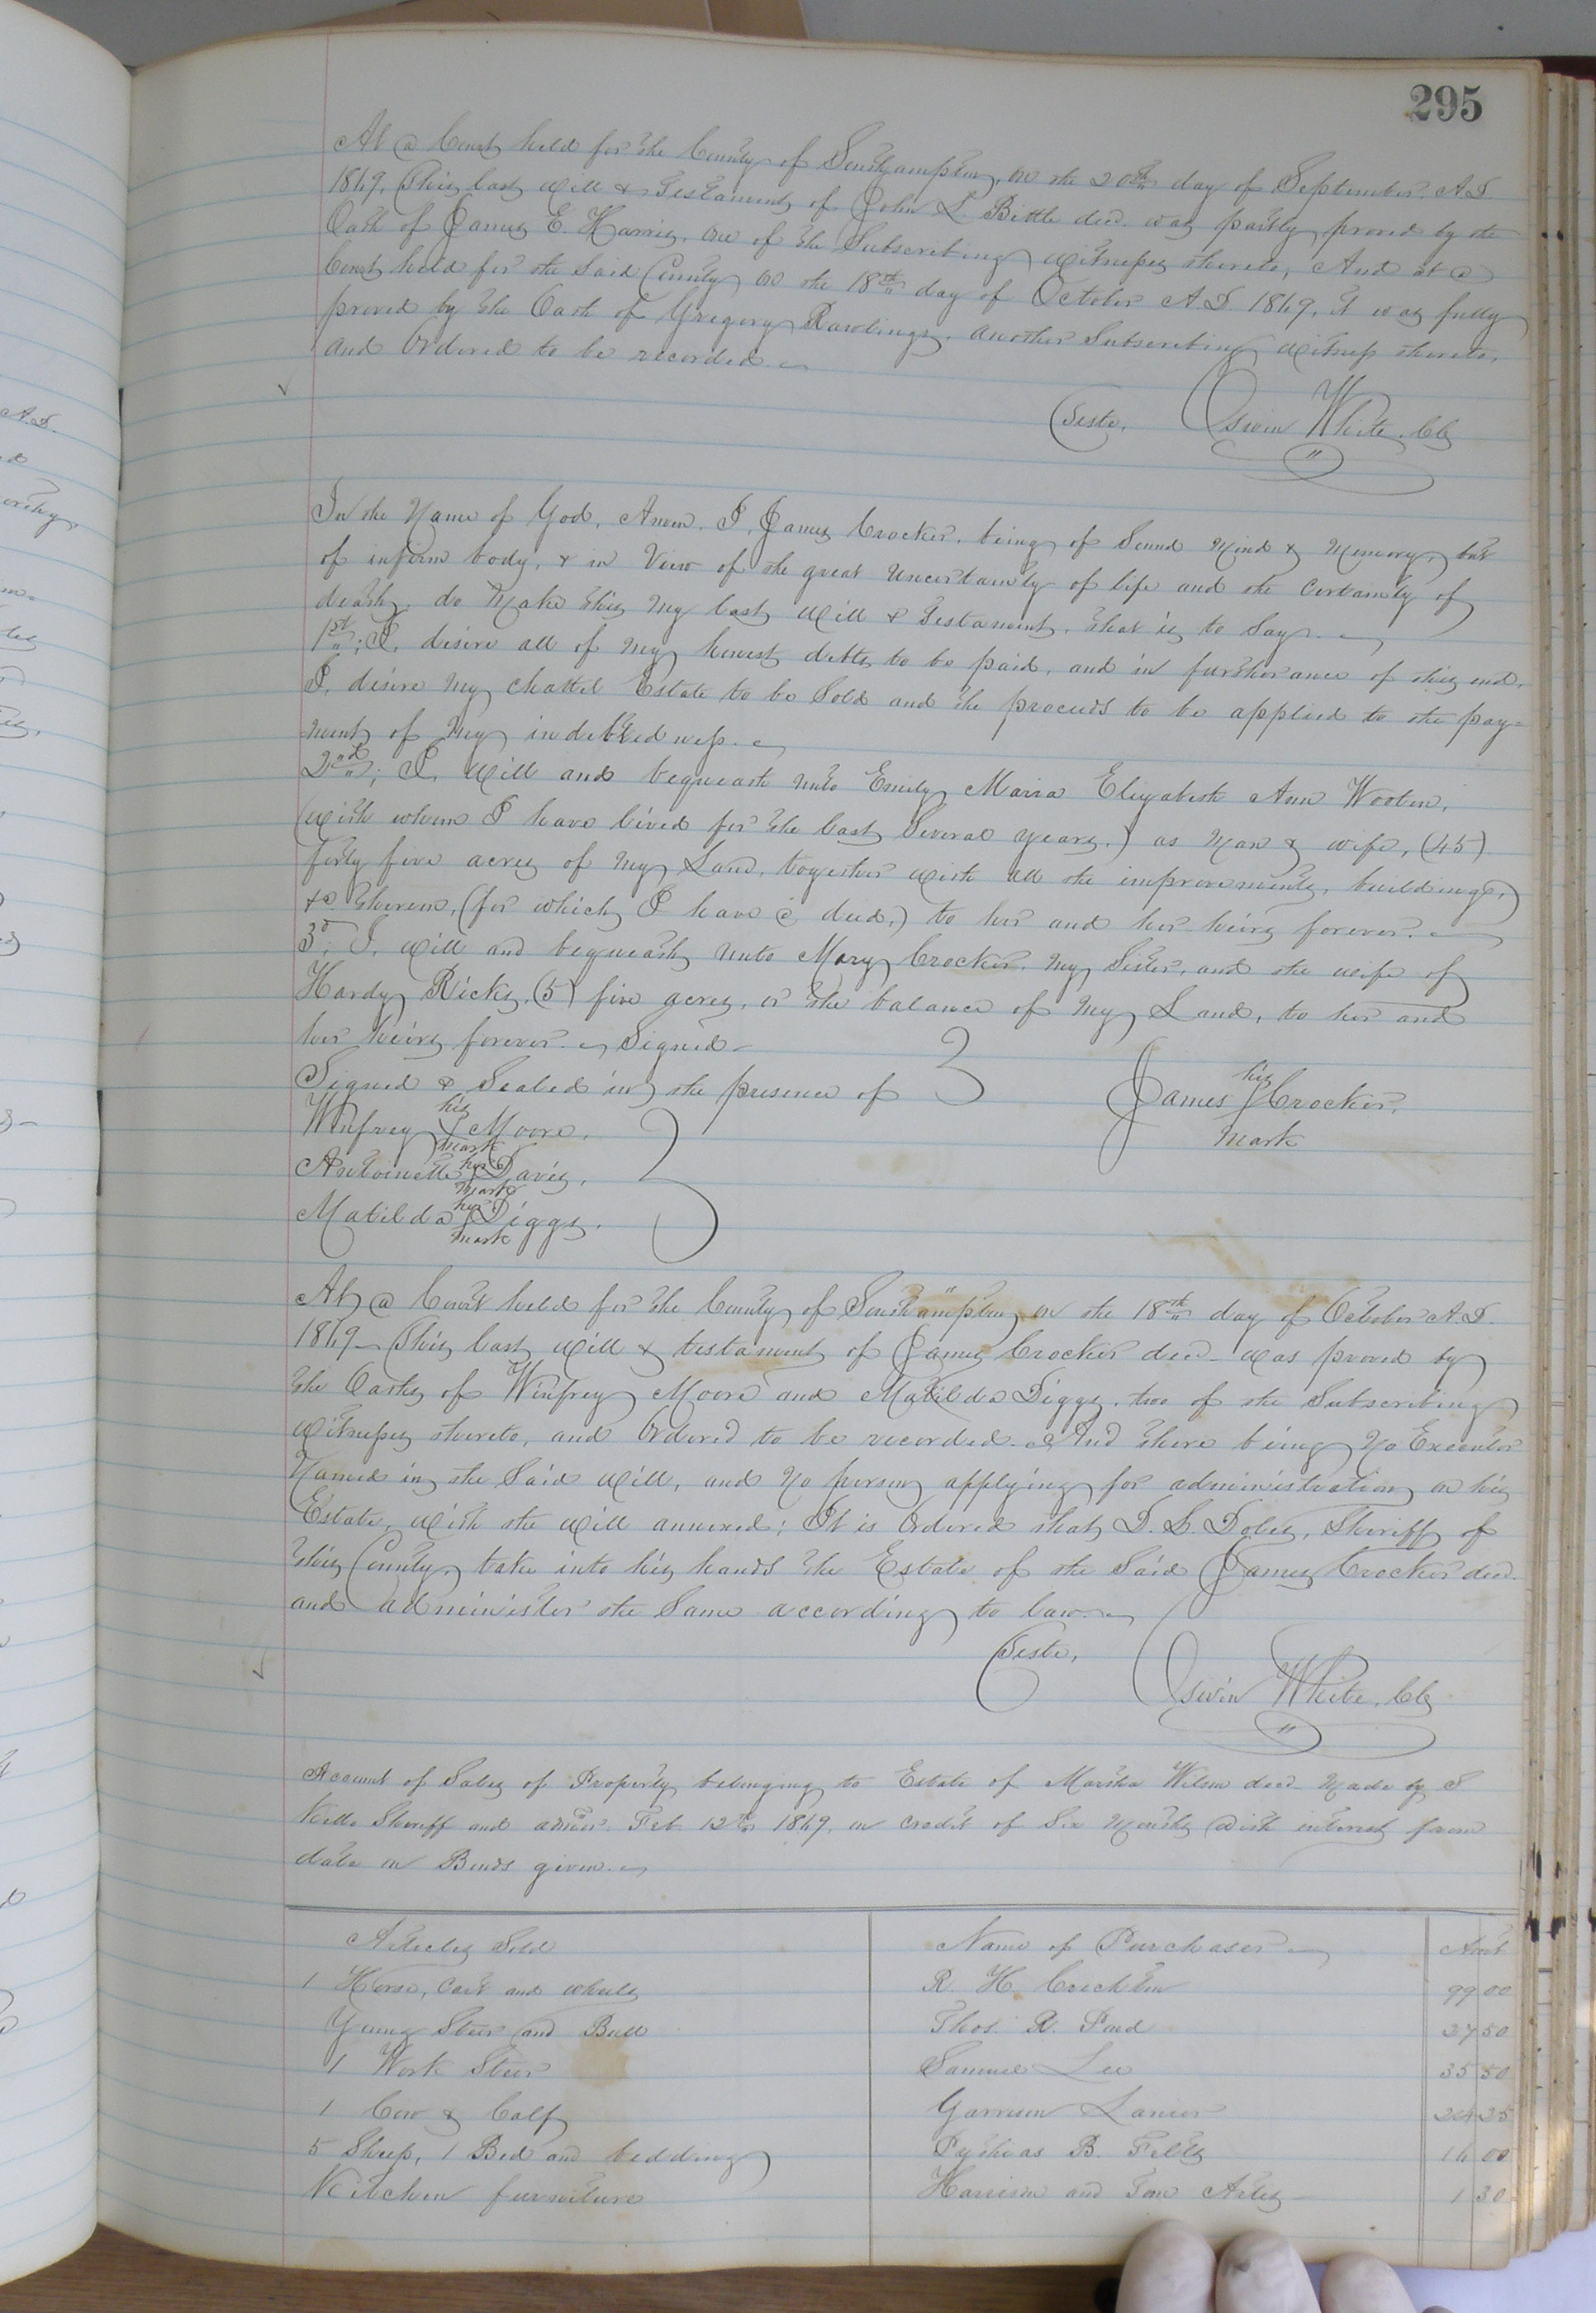 295
At a Court held for the County of Southampton, on the 20th day of September, A.D.
1869, This last will & Testament of John L. Bittle decd. was partly proved by the
Oath of James E. Harris, one of the Subscribing witnesses thereto, And at a
Court held for the said County on the 18th day of October A.D. 1869, it was fully
proved by the Oath of Gregory Rawlings, another Subscribing witness thereto,
and Ordered to be recorded.
Teste, Oswin White, Clk
In the Name of God, Amen. I, James Crocker, being of Sound Mind & Memory, but
of infirm body, & in View of the great Uncertainty of life and the Certainty of
death, do Make this My last Will & Testament, that is to Say.
1st; I, desire all of My honest debts to be paid, and in furtherance of this end,
I, desire My chattel Estate to be Sold and the proceeds to be applied to the pay-
ment of My indebtedness.
2nd; I, Will and bequeath unto Emily Maria Elizabeth Ann Wooten,
(with whom I have lived for the last Several years.) as Man & wife, (45)
forty five acres of My Land, together with all the improvements, buildings,
&c thereon, (for which I have a deed,) to her and her heirs forever.
3d; I, will and bequeath unto Mary Crocker, My Sister, and the wife of
Hardy Ricks, (5) five acres, or the balance of My Land, to her and
her heirs forever. Signed
Signed & Sealed in the presence of
his
James Crocker.
mark
his
Winfrey Moore.
mark
her
Antoinette Davis.
mark
her
Matilda Diggs.
mark
At a Court held for the County of Southampton on the 18th day of October A.D.
1869 This last Will & testament of James Crocker decd was proved by
the Oaths of Winfrey Moore and Matilda Diggs, two of the Subscribing
Witnesses thereto, and Ordered to be recorded. And there being No Executor
Named in the Said Will, and No person applying for administration on his
Estate, with the Will annexed; It is Ordered that D. L. Doles, Sheriff of
this County, take into his hands the Estate of the Said James Crocker decd.
and administer the Same according to law.
Teste,
Oswin White, Clk
Account of Sales of Property belonging to Estate of Martha Wilson decd Made by S
Kello Sheriff and admr. Feb 12th 1869, on credit of Six Months with interest from
date on Bonds given.
Articles Sold Name of Purchaser Amt
1 Horse, Cart and wheels R. H. Crichton 99 00
Young Steer and Bull Thos. R. 27 50
1 Work Steer Samuel Lee 35 50
1 Cow & Calf Garrison Lanier 24 25
5 Sheep, 1 Bed and bedding B. Felts 16 00
Kitchen furniture Harrison and Tom Artis 1 30